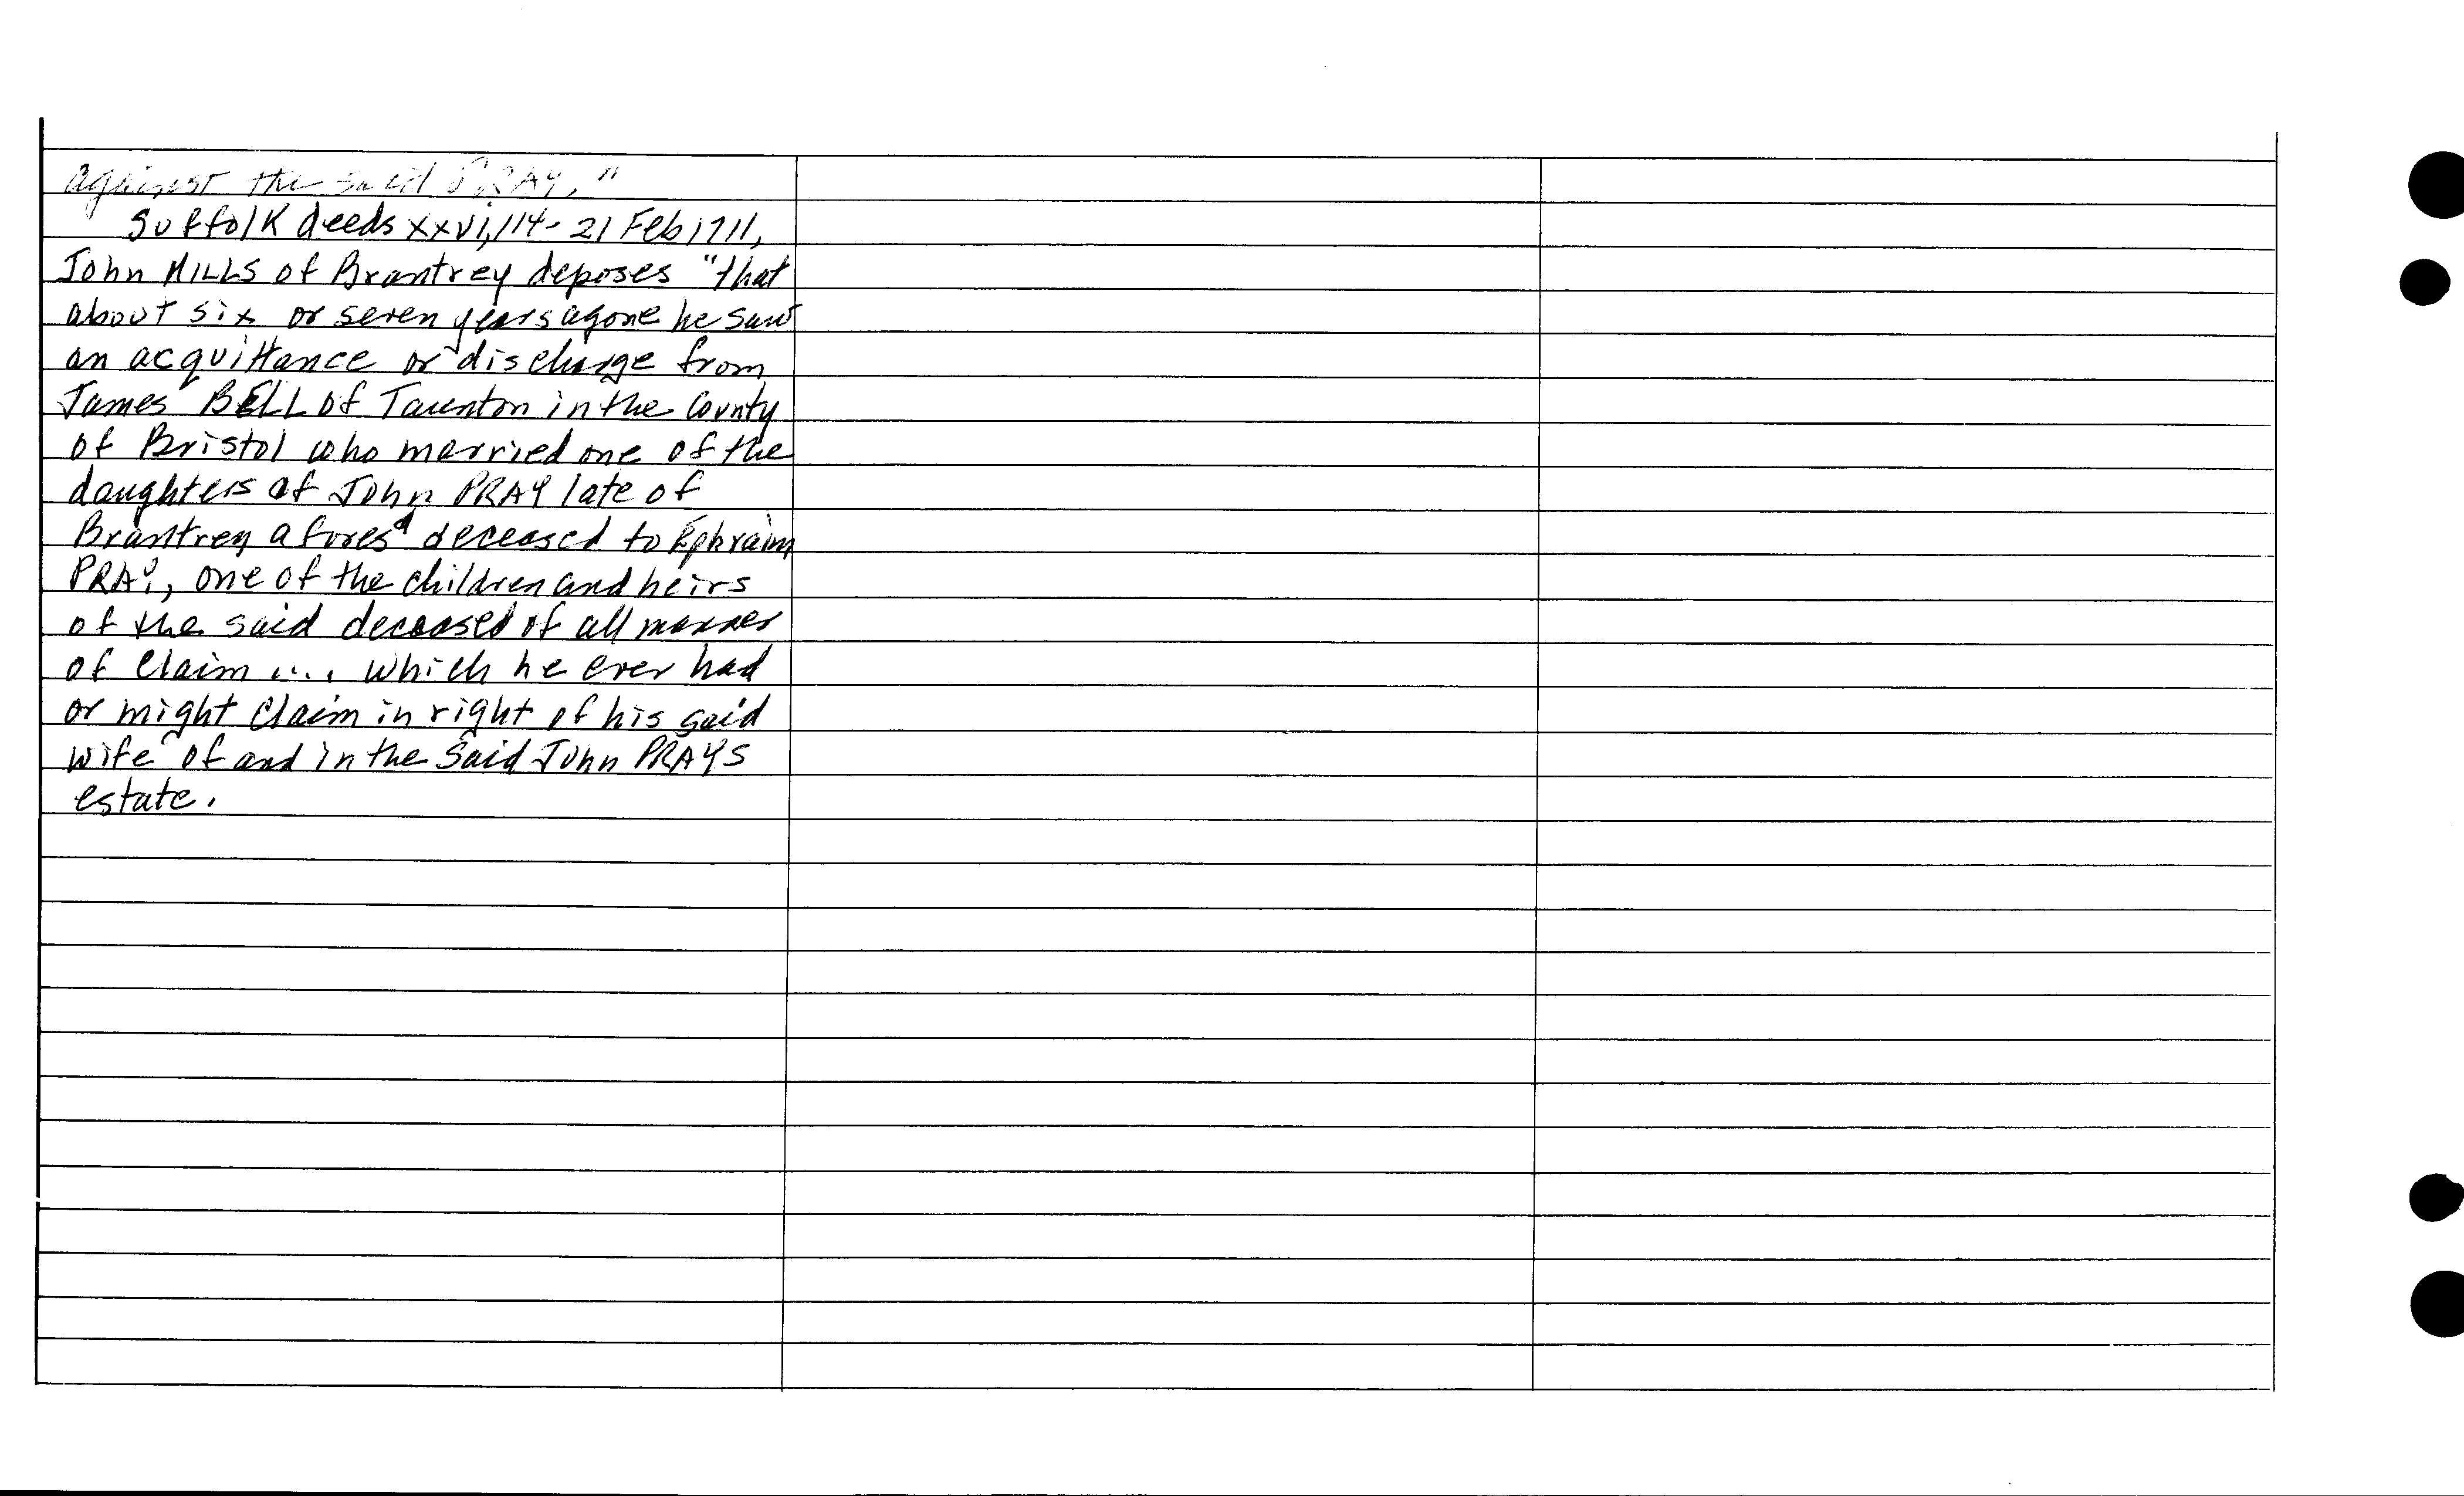 against the said PRAY."
Suffolk deeds xxvi,114- 21 Feb 1711,
John MILLS of Brantrey deposes "that
about six or seven years agone he saw
an acquittance or discharge from
James BELL of Taunton in the County
of Bristol who married one of the
daughters of John PRAY late of
Brantrey afores^d deceased to Ephraim
PRAY, one of the children and heirs
of the said deceased of all manner
of Claim .... which he ever had
or might Claim in right of his said
wife of and in the Said John PRAYS
estate.